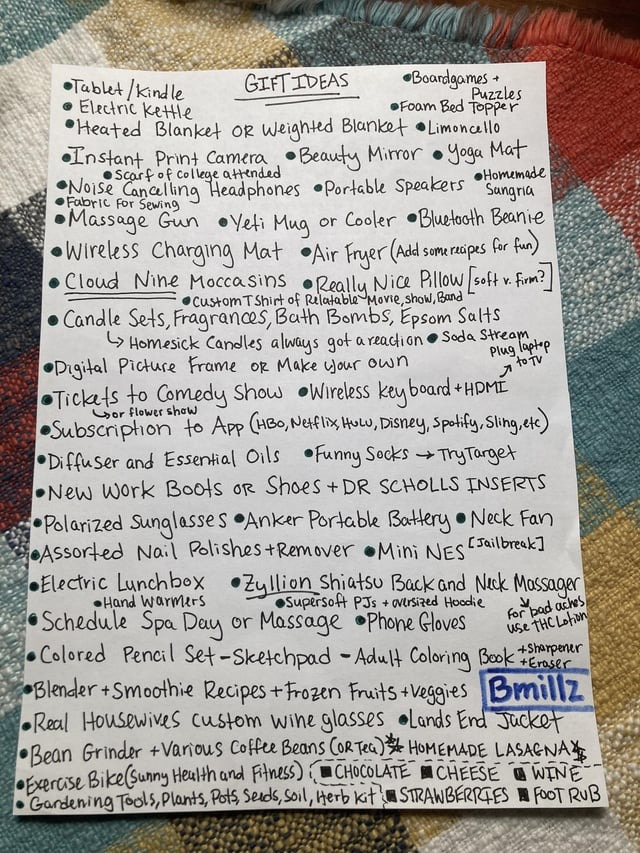 GIFT IDEAS
•Tablet/Kindle •Boardgames + Puzzles
•Electric Kettle •Foam Bed Topper
•Heated Blanket OR Weighted Blanket •Limoncello
•Instant Print Camera •Beauty Mirror •Yoga Mat
•Scarf of college attended •Homemade Sangria
•Noise Cancelling Headphones •Portable Speakers
•Fabric For Sewing
•Massage Gun •Yeti Mug or Cooler •Bluetooth Beanie
•Wireless Charging Mat •Air Fryer (Add some recipes for fun)
•Cloud Nine Moccasins •Really Nice Pillow [soft v. firm?]
•Custom T Shirt of Relatable Movie, show, Band
•Candle Sets, Fragrances, Bath Bombs, Epsom Salts
↳ Homesick Candles always got a reaction •Soda Stream
•Digital Picture Frame or Make your own
Plug laptop to TV
•Tickets to Comedy Show •Wireless keyboard + HDMI
↳or flower show
•Subscription to App (HBO, Netflix, Hulu, Disney, Spotify, Sling, etc)
•Diffuser and Essential Oils •Funny Socks → Try Target
•New Work Boots OR Shoes + DR SCHOLLS INSERTS
•Polarized Sunglasses •Anker Portable Battery •Neck Fan
•Assorted Nail Polishes + Remover •Mini NES [Jailbreak]
•Electric Lunchbox •Zyllion Shiatsu Back and Neck Massager
•Hand Warmers •Supersoft PJs + oversized Hoodie
For bad aches use THC Lotion
•Schedule Spa Day or Massage •Phone Gloves
•Colored Pencil Set - Sketchpad - Adult Coloring Book +Sharpener +Eraser
•Blender + Smoothie Recipes + Frozen Fruits + veggies
Bmillz
•Real Housewives custom wine glasses •Lands End Jacket
•Bean Grinder + Various Coffee Beans (OR Tea) HOMEMADE LASAGNA
•Exercise Bike (Sunny Health and Fitness) ■CHOCOLATE ■CHEESE ■WINE
•Gardening Tools, Plants, Pots, Seeds, Soil, Herb Kit ■STRAWBERRIES ■FOOT RUB